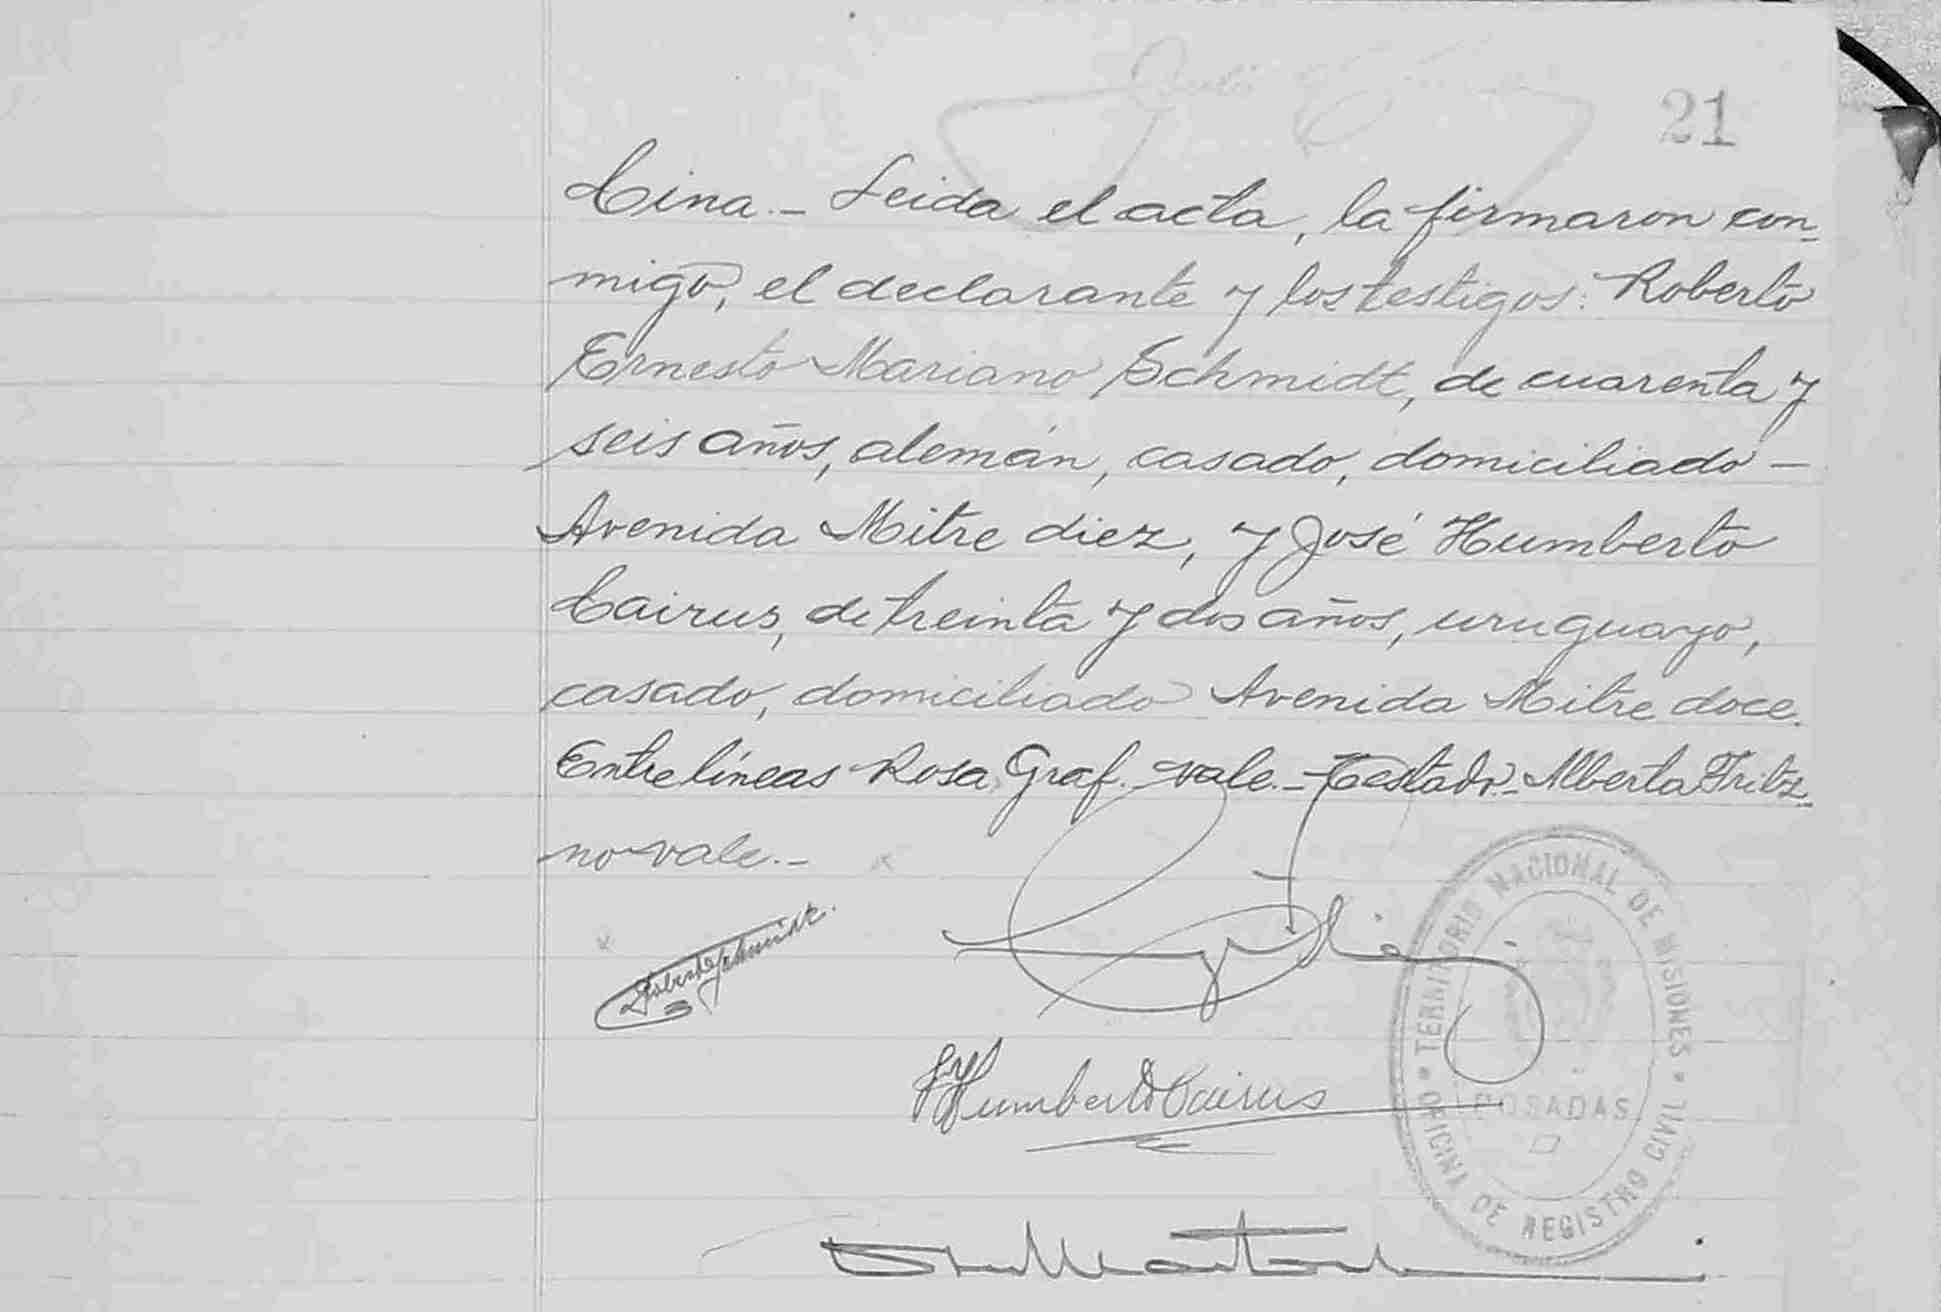 21
cina. - Leida el acta, la firmaron con-
migo, el declarante y los testigos: Roberto
Ernesto Mariano Schmidt, de cuarenta y
seis años, alemán, casado, domiciliado -
Avenida Mitre diez, y José Humberto
Cairus, de treinta y dos años, uruguayo,
casado, domiciliado Avenida Mitre doce.
Entre líneas Rosa Graf. vale. - Testado - Alberta Fritz -
no vale. -
Roberto Schmidt.
Humberto Cairus
TERRITORIO NACIONAL DE MISIONES
POSADAS
OFICINA DE REGISTRO CIVIL